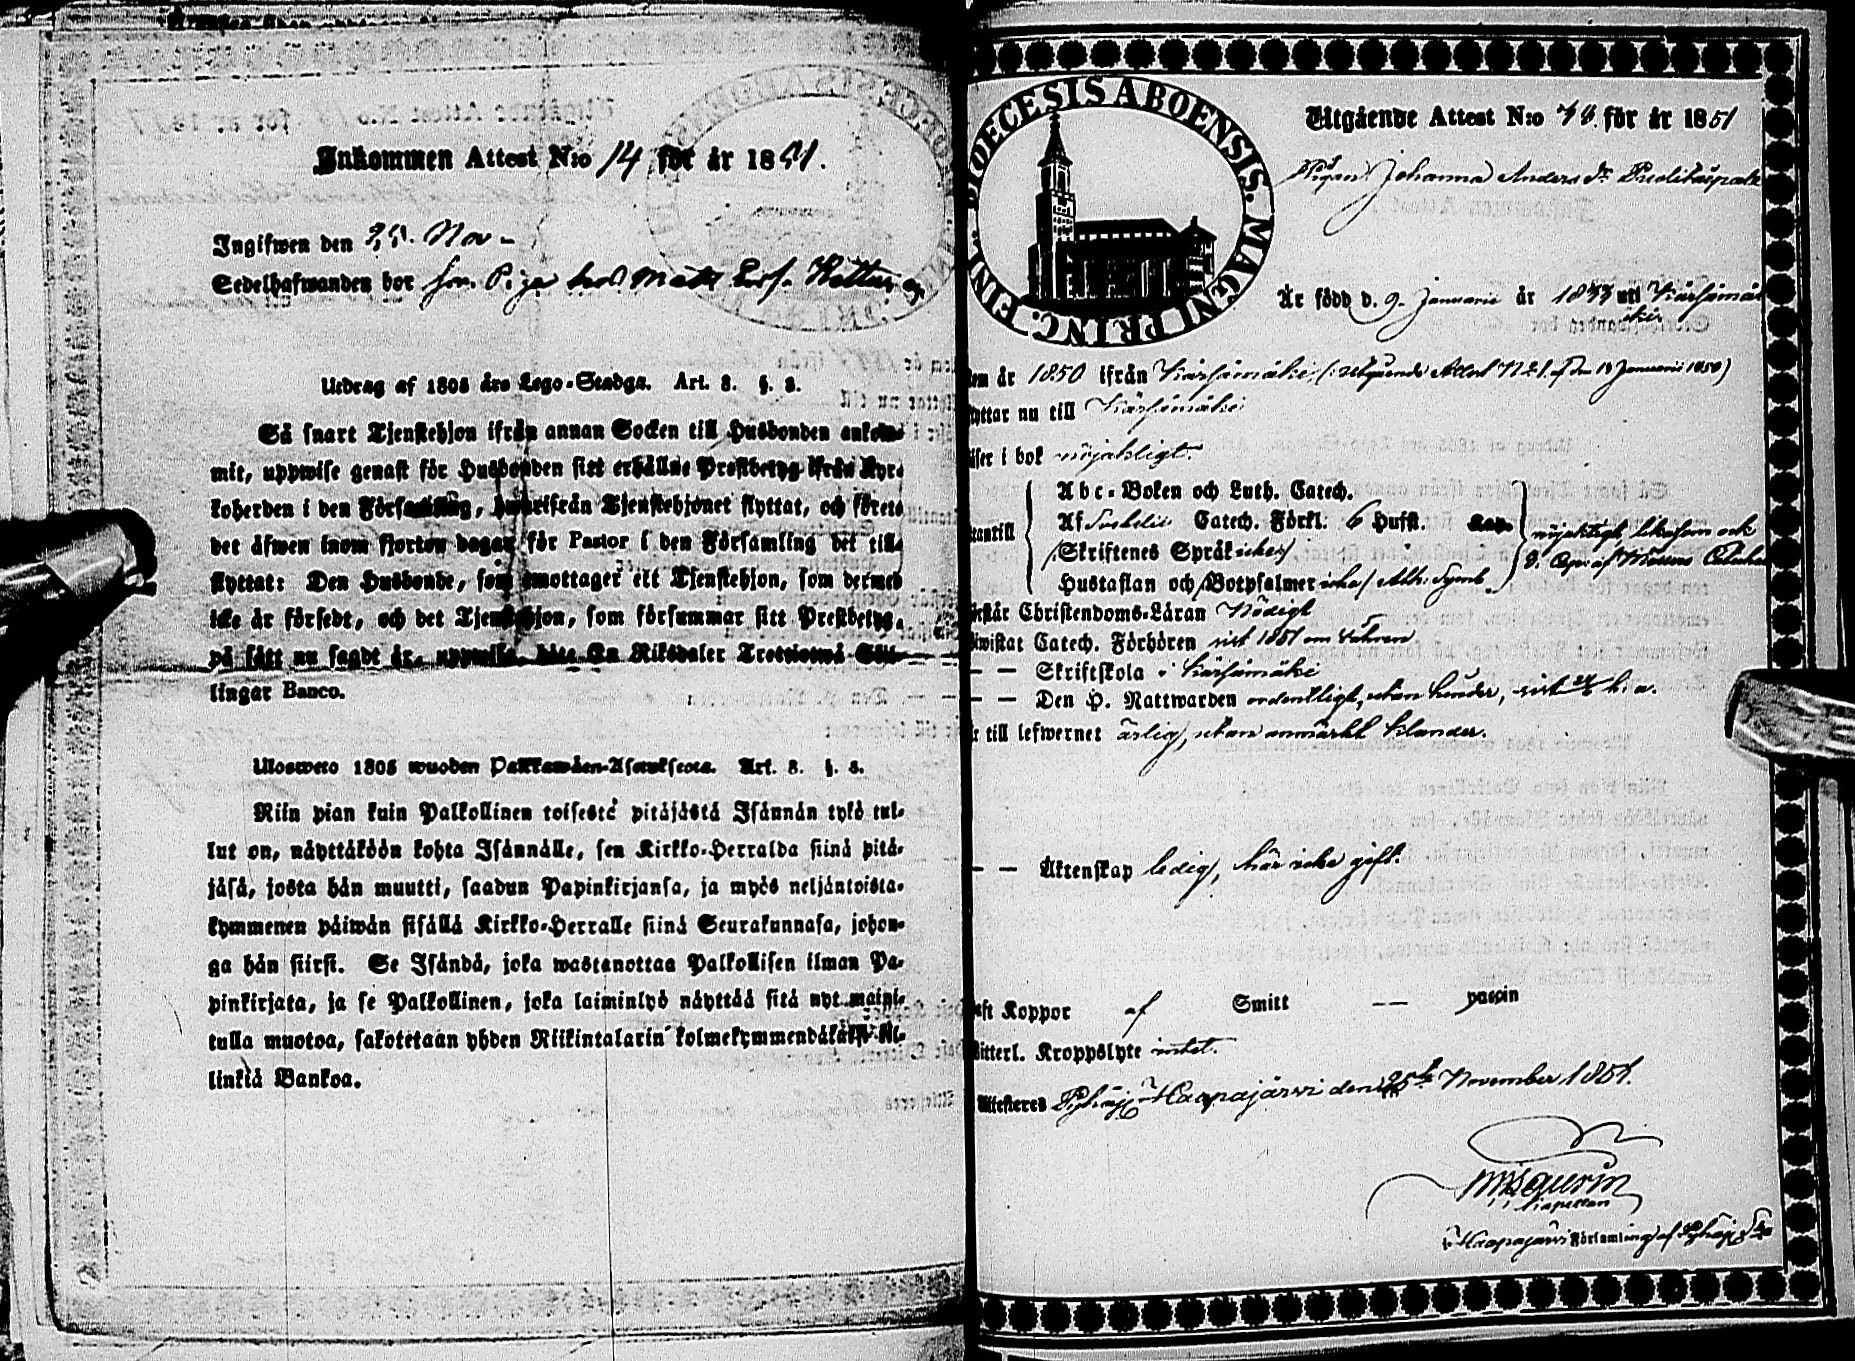 Inkommen Attest N:o 14 för år 1851.
Ingifwen den 25. Nov -
Sedelhafwanden bor som Piga hos Matts
Utdrag af 1805 års Lego-Stadga. Art. 8. §. 8.
Så snart Tjenstehjon ifrån annan Socken till Husbonden ankom-
mit, uppwise genast för Husbonden sitt erhållne Prestbetyg ifrån Kyr-
koherden i den Församling, hwarifrån Tjenstehjonet flyttat, och förete
det äfwen inom fjorton dagar för Pastor i den Församling det till-
flyttat: Den Husbonde, som emottager ett Tjenstehjon, som dermed
icke är försedt, och det Tjenstehjon, som försummar sitt Prestbetyg,
på sätt nu sagdt är, uppwisa, böte En Riksdaler Trettiotwå Skil-
lingar Banco.
Ulosweto 1805 wuoden Palkkawäen-Asetuksesta. Art. 8. §. 8.
Niin pian kuin Palkollinen toisesta pitäjästä Isännän tykö tul-
lut on, näyttäköön kohta Isännälle, sen Kirkko-Herralda siinä pitä-
jäsä, josta hän muutti, saadun Papinkirjansa, ja myös neljäntoista-
kymmenen päiwän sisällä Kirkko-Herralle siinä Seurakunnasa, johon-
ga hän siirsi. Se Isändä, joka wastanottaa Palkollisen ilman Pa-
pinkirjata, ja se Palkollinen, joka laiminlyö näyttää sitä nyt maini-
tulla muotoa, sakotetaan yhden Riikintalarin kolmekymmendäkaksi kil-
linkiä Bankoa.
DIOECESIS ABOENSIS. MAGNI PRINC. FINL.
Utgående Attest N:o 74. för år 1851
Pigan Johanna Anders dr
Är född d. 9. Januarii år 1833 uti Kärsämä-
ki
om år 1850 ifrån Kärsämäki, (: utgående Attest N 21 af den 18 Januarii 1850)
flyttar nu till Kärsämäki
äser i bok nöjaktigt.
Abc-Boken och Luth. Catech.
Af Svebelii Catech. Förkl. 6 Hufst. Kap.
tantill
Skriftenes Språk icke
nöjaktigt likasom ock
Hustaflan och Botpsalmer icke Ath. Symb.
Förstår Christendoms-Läran Nödigt
iwistat Catech. Förhören sist 1851 om
— — Skriftskola i Kärsämäki
— — Den H. Nattwarden ordentligt, utan hinder, sist h. a.
r till lefwernet ärlig, utan anmärkt klander.
— — Äktenskap ledig, här icke gift.
aft Koppor af Smitt — — vaccin
itterl. Kroppslyte intet.
Attesteres Pyhäj. Haapajärvi den 25te November 1851.
Kapellan
i Haapajärvi Församling af Pyhäj.